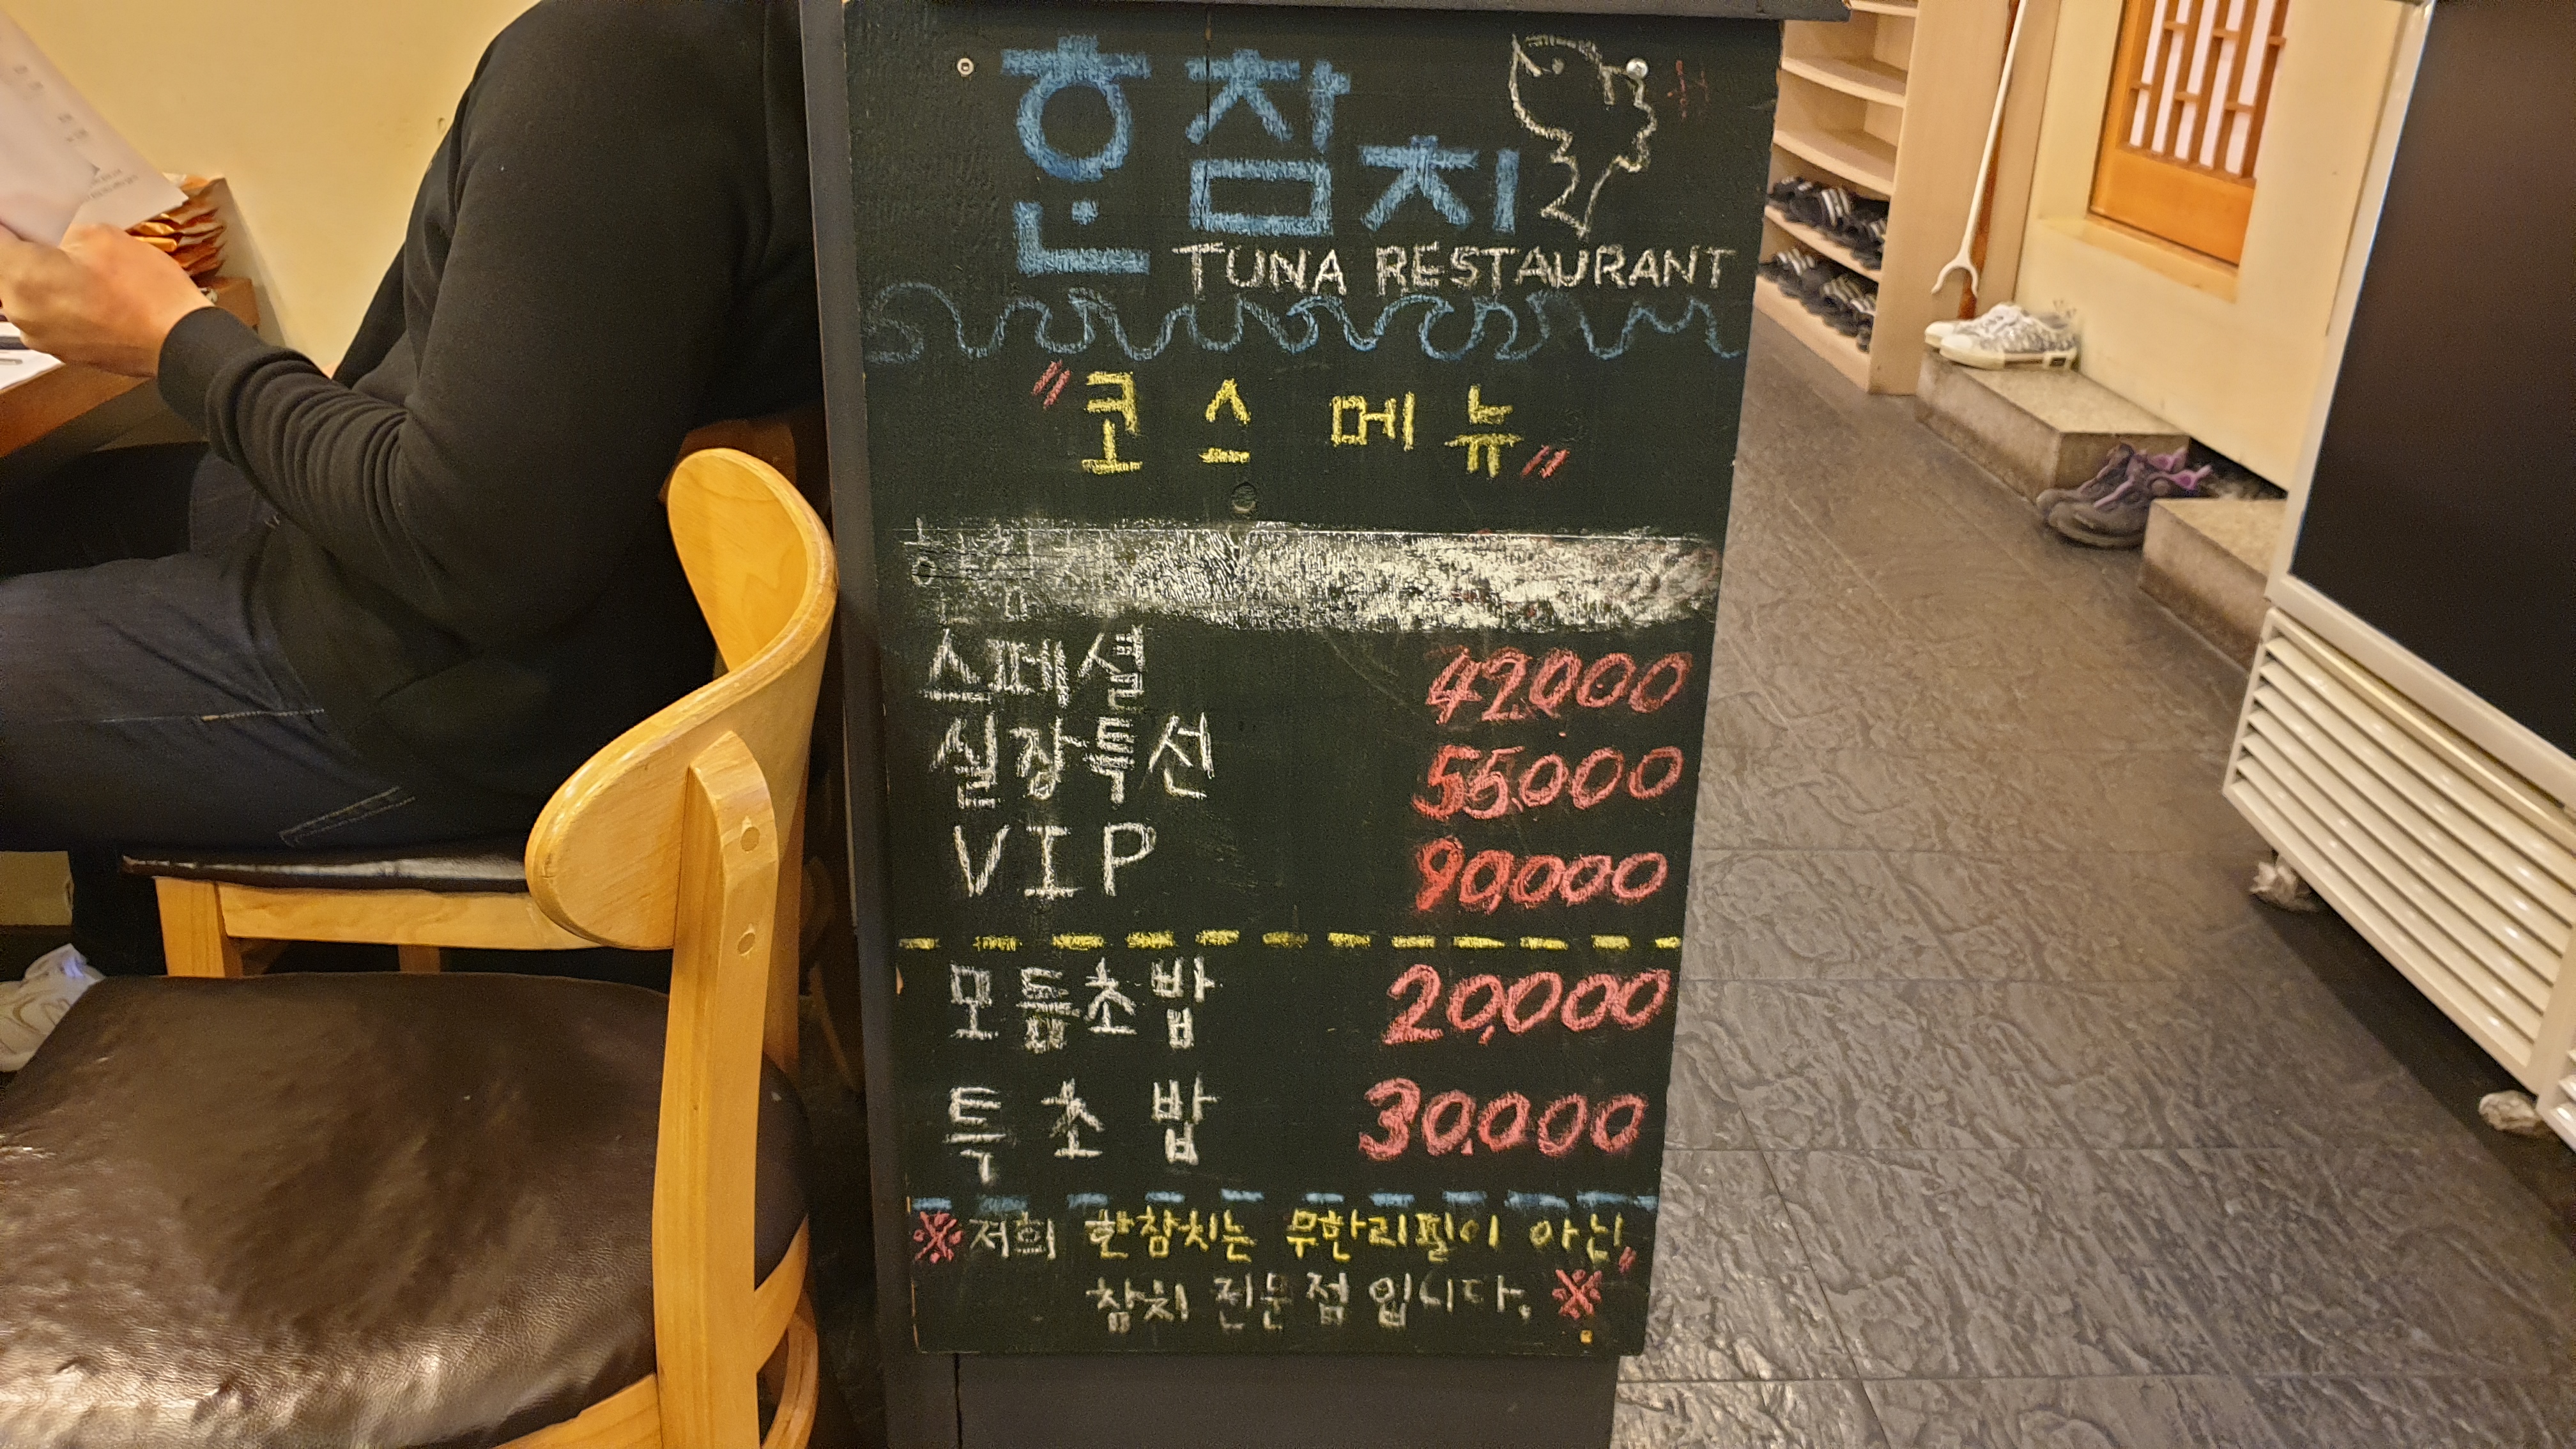 혼참치
TUNA RESTAURANT
"코스 메뉴"
스페셜 42,000
실장특선 55,000
VIP 90,000
모듬초밥 20,000
특초밥 30,000
※저희 한참치는 무한리필이 아닌
참치 전문점 입니다.※